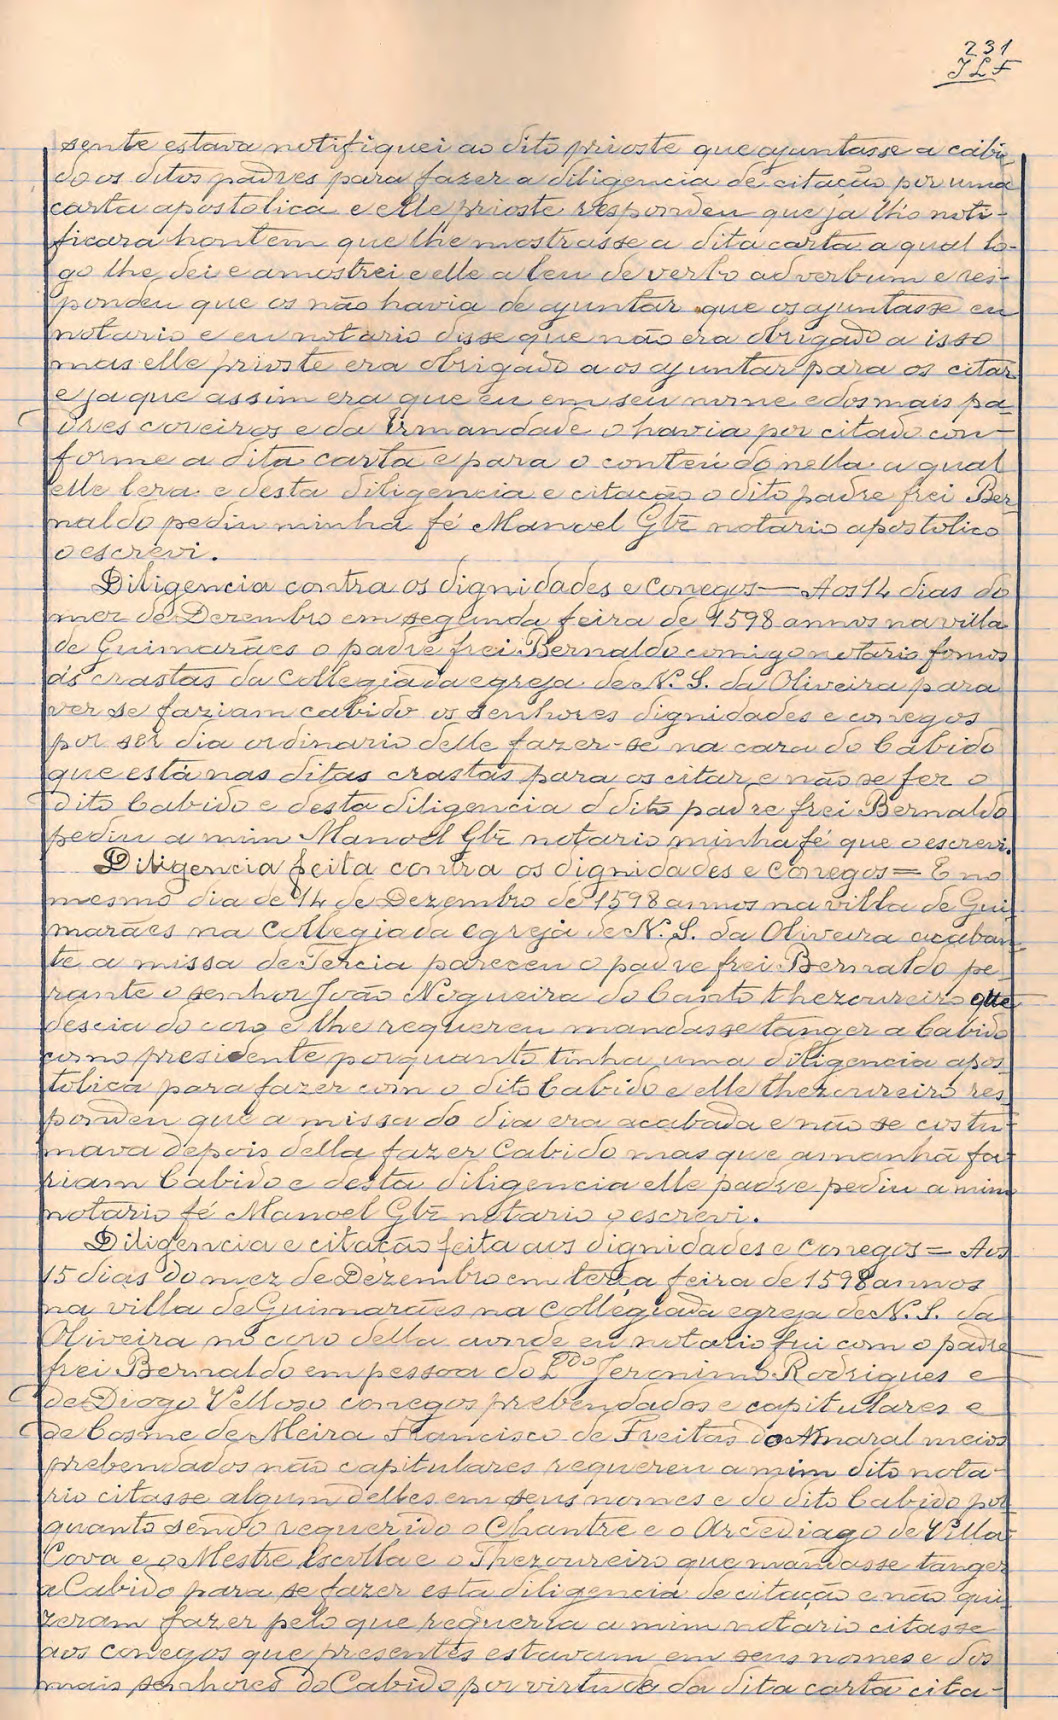 231
JLF
sente estava notifiquei ao dito prioste que ajuntasse a cabi-
do os ditos padres para fazer a diligencia de citação por uma
carta apostolica e elle prioste respondeu que ja lho noti-
ficara hontem que lhe mostrasse a dita carta a qual lo-
go lhe dei e amostrei e elle a leu de verbo ad verbum e res-
pondeu que os não havia de ajuntar que os ajuntasse eu
notario e eu notario disse que não era obrigado a isso
mas elle prioste era obrigado a os ajuntar para os citar
e ja que assim era que eu em seu nome e dos mais pa-
dres coreiros e da Irmandade o havia por citado con-
forme a dita carta e para o conteúdo nella a qual
elle lera e desta diligencia e citação o dito padre frei Ber-
naldo pediu minha fé Manoel Glz notario apostolico
o escrevi.
Diligencia contra os dignidades e conegos — Aos 14 dias do
mez de Dezembro em segunda feira de 1598 annos na villa
de Guimarães o padre frei Bernaldo comigo notario fomos
ás crastas da Collegiada egreja de N. S. da Oliveira para
ver se faziam cabido os senhores dignidades e conegos
por ser dia ordinario delle fazer-se na caza do Cabido
que está nas ditas crastas para os citar e não se fez o
dito Cabido e desta diligencia o dito padre frei Bernaldo
pediu a mim Manoel Glz notario minha fé que o escrevi.
Diligencia feita contra os dignidades e conegos = E no
mesmo dia de 14 de Dezembro de 1598 annos na villa de Gui-
marães na Collegiada egreja de N. S. da Oliveira acaban-
te a missa de Tercia pareceu o padre frei Bernaldo pe-
rante o senhor João Nogueira do Canto thezoureiro que
descia do coro e lhe requereu mandasse tanger a Cabido
como presidente porquanto tinha uma diligencia apos-
tolica para fazer com o dito Cabido e elle thezoureiro res-
pondeu que a missa do dia era acabada e não se costu-
mava depois della fazer Cabido mas que amanhã fa-
riam Cabido e desta diligencia elle padre pediu a mim
notario fé Manoel Glz notario o escrevi.
Diligencia e citação feita aos dignidades e conegos = Aos
15 dias do mez de Dezembro em terça feira de 1598 annos
na villa de Guimarães na Collegiada egreja de N. S. da
Oliveira no coro della aonde eu notario fui com o padre
frei Bernaldo em pessoa do Ldo Jeronimo Rodrigues e
de Diogo Velloso conegos prebendados e capitulares e
de Cosme de Meira Francisco de Freitas do Amaral meios
prebendados não capitulares requereu a mim dito nota-
rio citasse algum delles em seus nomes e do dito Cabido por
quanto sendo requerido o Chantre e o Arcediago de Villa
Cova e o Mestre Escolla e o Thezoureiro que mandasse tanger
a Cabido para se fazer esta diligencia de citação e não qui-
zeram fazer pelo que requeria a mim notario citasse
aos conegos que presentes estavam em seus nomes e dos
mais senhores do Cabido por virtude da dita carta cita-